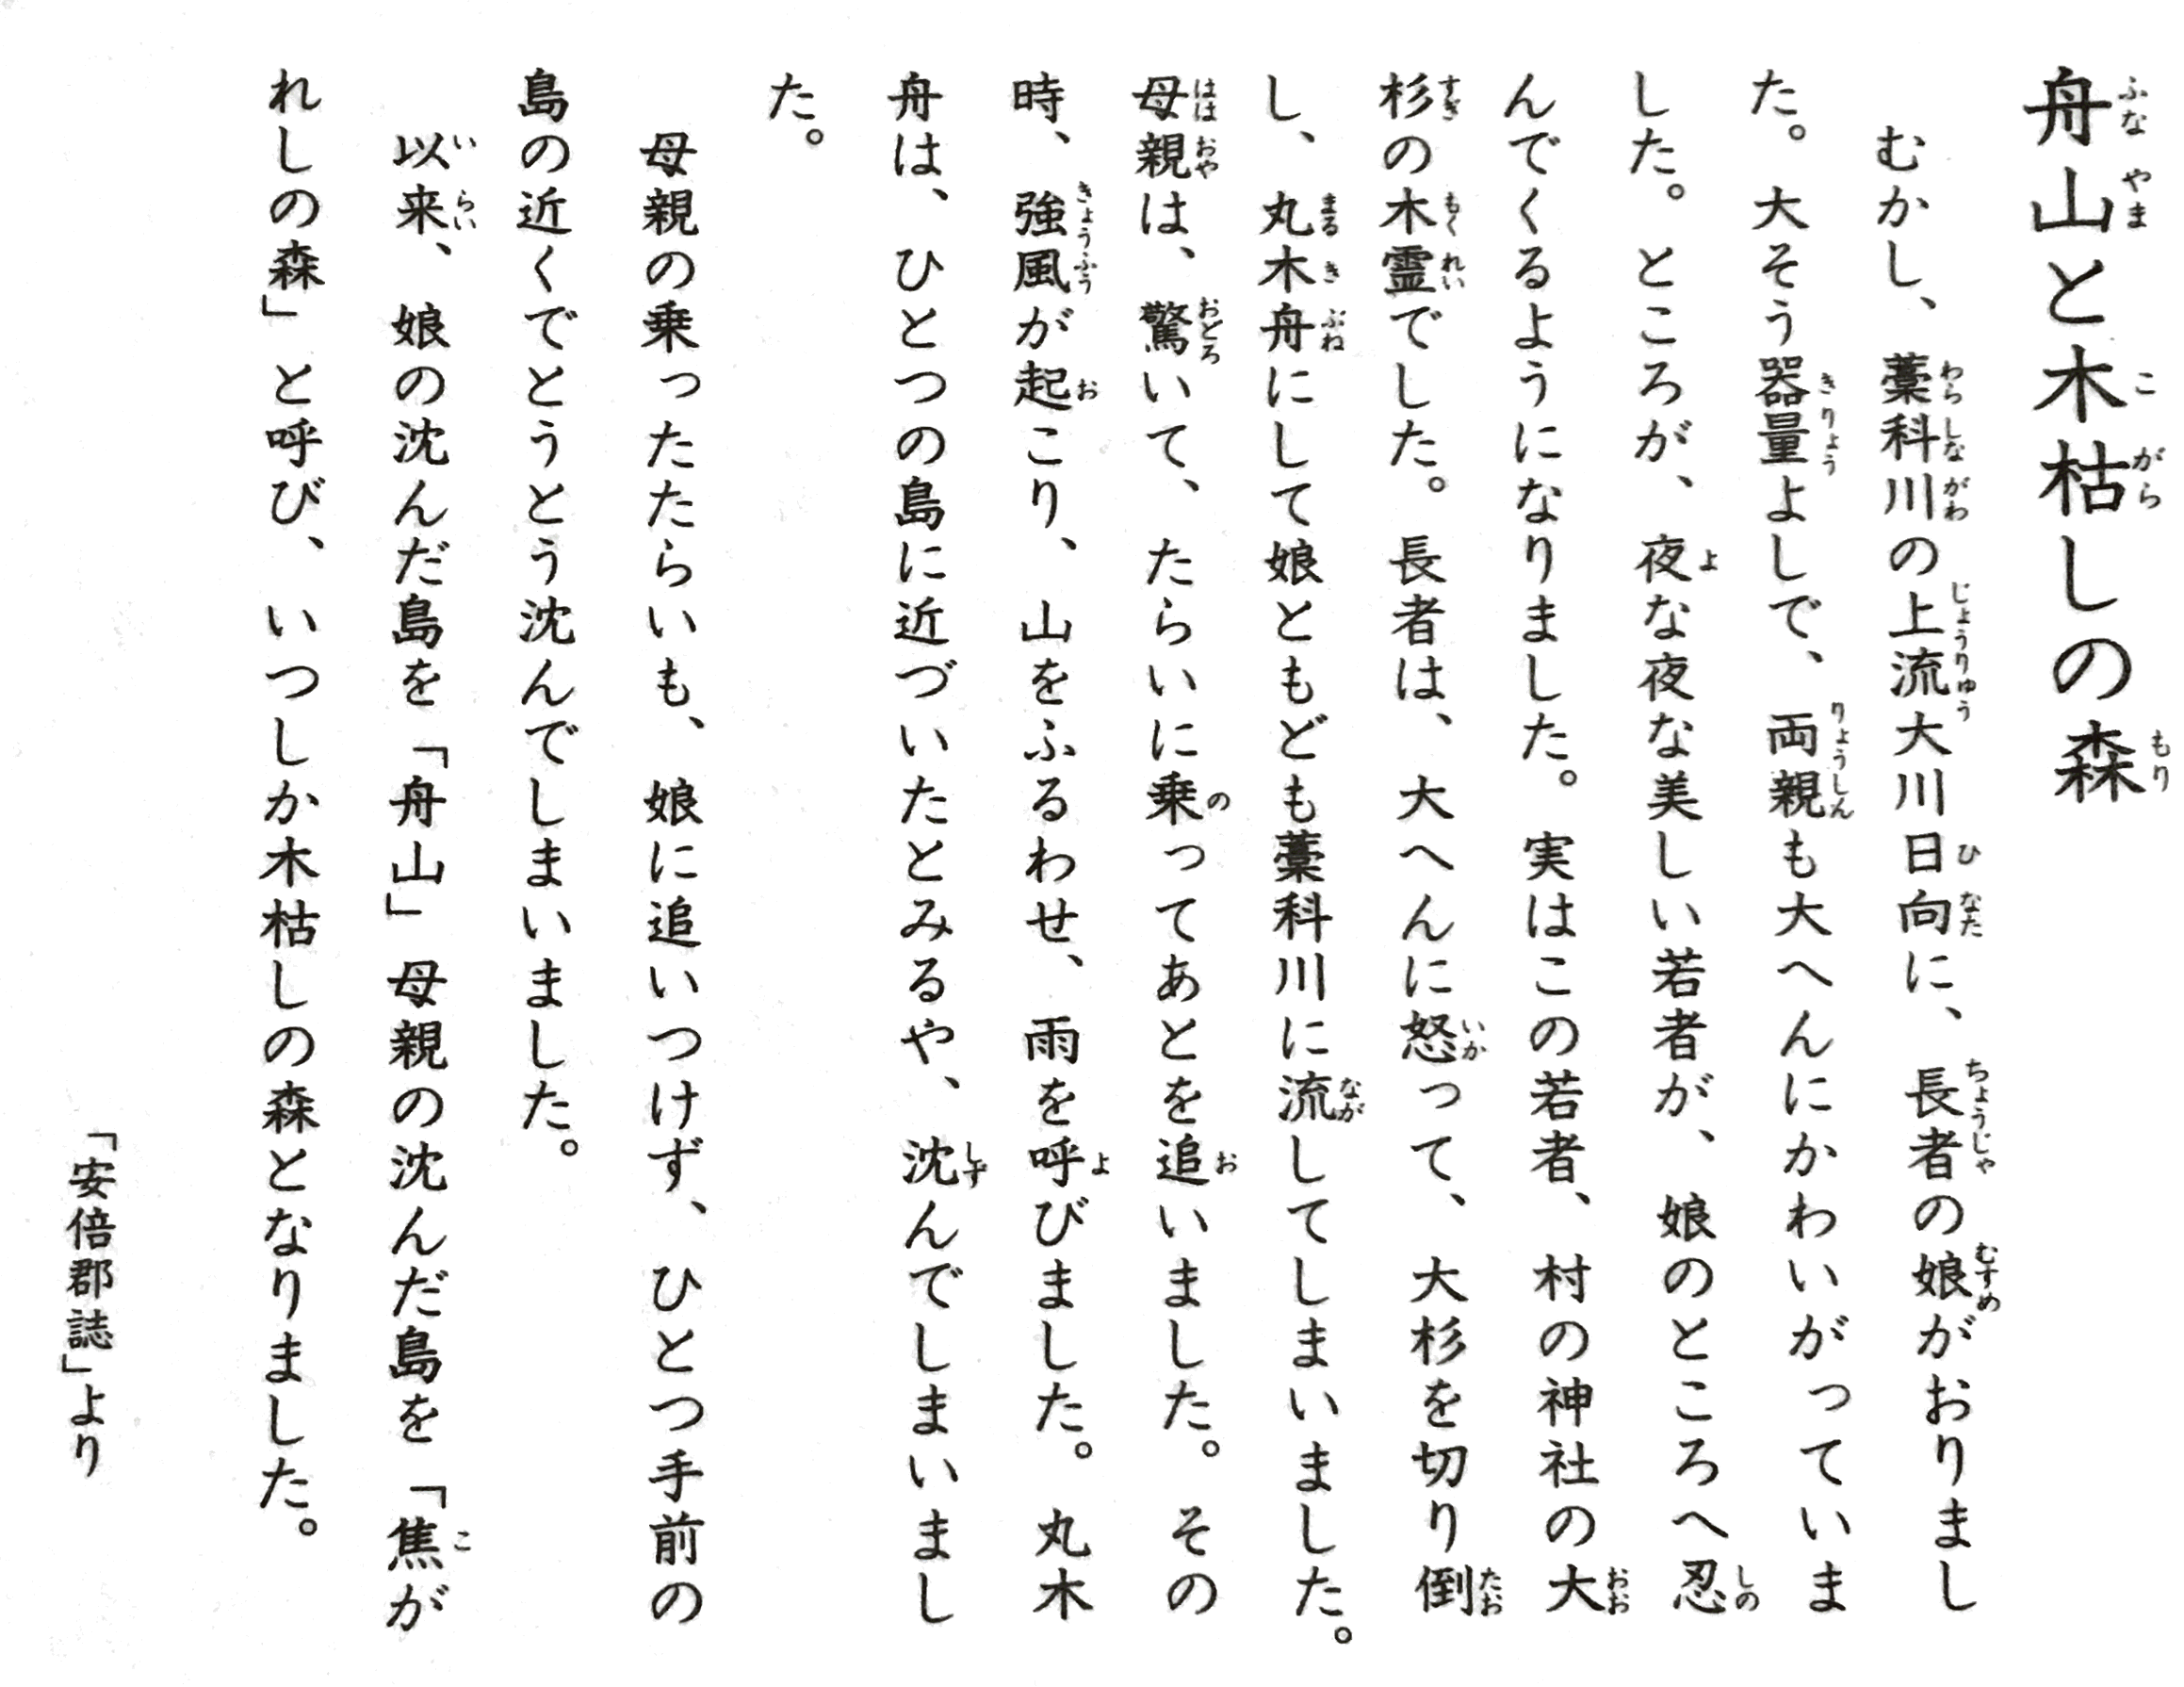 舟山と木枯しの森
むかし、藁科川の上流大川日向に、長者の娘がおりまし
た。大そう器量よしで、両親も大へんにかわいがっていま
した。ところが、夜な夜な美しい若者が、娘のところへ忍
んでくるようになりました。実はこの若者、村の神社の大
杉の木霊でした。長者は、大へんに怒って、大杉を切り倒
し、丸木舟にして娘ともども藁科川に流してしまいました。
母親は、驚いて、たらいに乗ってあとを追いました。その
時、強風が起こり、山をふるわせ、雨を呼びました。丸木
舟は、ひとつの島に近づいたとみるや、沈んでしまいまし
た。
母親の乗ったたらいも、娘に追いつけず、ひとつ手前の
島の近くでとうとう沈んでしまいました。
以来、娘の沈んだ島を「舟山」母親の沈んだ島を「焦が
れしの森」と呼び、いつしか木枯しの森となりました。
「安倍郡誌」より